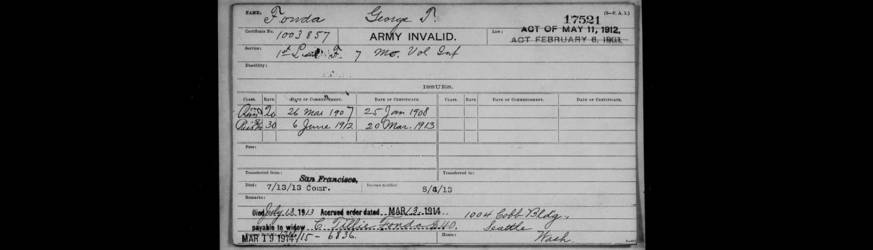 NAME: Fonda George T. 17521 (3-P. A. I.)
Certificate No. 1003857 ARMY INVALID. Law: ACT OF MAY 11, 1912.
ACT FEBRUARY 6, 1907.
Service: 1st Lieut F. 7 Mo. Vol Inf
Disability:
ISSUES.
CLASS. RATE. DATE OF COMMENCEMENT. DATE OF CERTIFICATE. CLASS. RATE. DATE OF COMMENCEMENT. DATE OF CERTIFICATE.
20 26 Mar 1907 25 Jan 1908
30 6 June 1912 20 Mar. 1913
Fees:
Transferred from: San Francisco, Transferred to:
Died: 7/13/13 Cour. Bureau notified: 8/4/13
Remarks:
Died July 13, 1913 Accrued order dated MAR 3, 1914 1004 Cobb Bldg,
payable to widow C. Tillie Fonda Seattle
MAR 19 1914 - 6836. Home: Wash